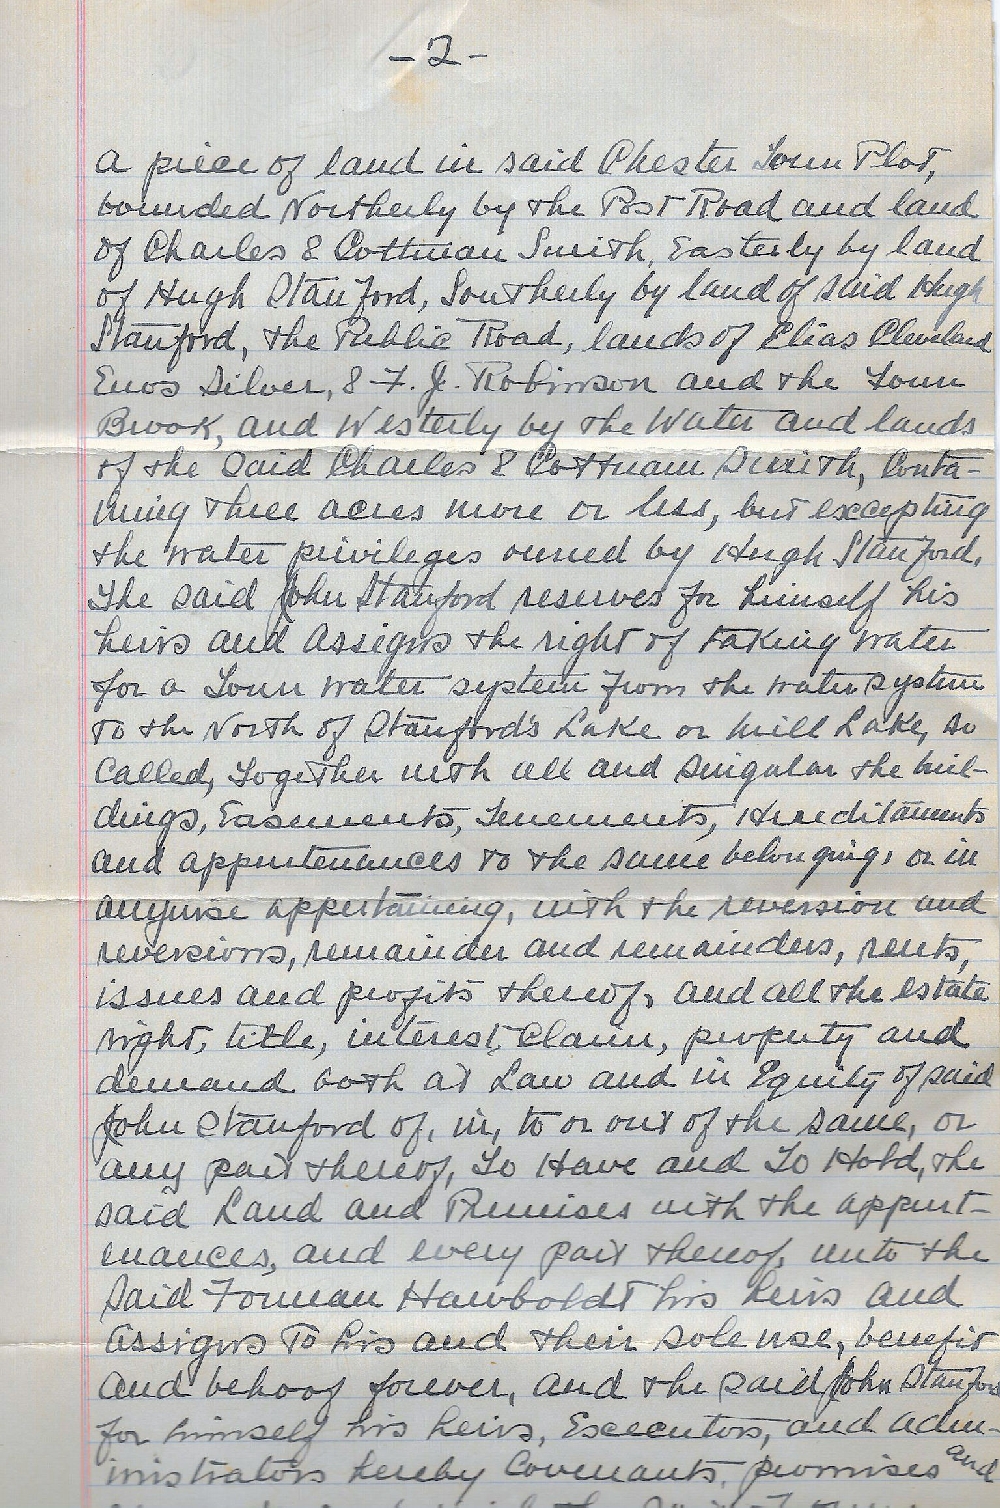 -2-
a piece of land in said Chester Town Plot,
bounded Northerly by the Post Road and land
of Charles & Cottnam Smith, Easterly by land
of Hugh Stanford, Southerly by land of said Hugh
Stanford, the Public Road, lands of Elias Cleveland
Enos Silver, & F. J. Robinson and the Town
Brook, and Westerly by the Water and lands
of the said Charles & Cottnam Smith, Conta-
ining three acres more or less, but excepting
the water privileges owned by Hugh Stanford.
The said John Stanford reserves for himself his
heirs and assigns the right of taking water
for a Town water system from the water system
to the North of Stanford's Lake or Mill Lake, so
called, Together with all and singular the buil-
dings, Easements, Tenements, Hereditaments
and appurtenances to the same belonging, or in
anywise appertaining, with the reversion and
reversions, remainder and remainders, rents,
issues and profits thereof, and all the estate
right, title, interest, Claim, property and
demand both at Law and in Equity of said
John Stanford of, in, to or out of the same, or
any part thereof, To Have and To Hold, the
said Land and Premises with the appurt-
enances, and every part thereof, unto the
said Forman Hawboldt his heirs and
assigns To his and their sole use, benefit
and behoof forever, and the said John Stanford
for himself his heirs, Executors, and adm-
inistrators hereby Covenants, promises and